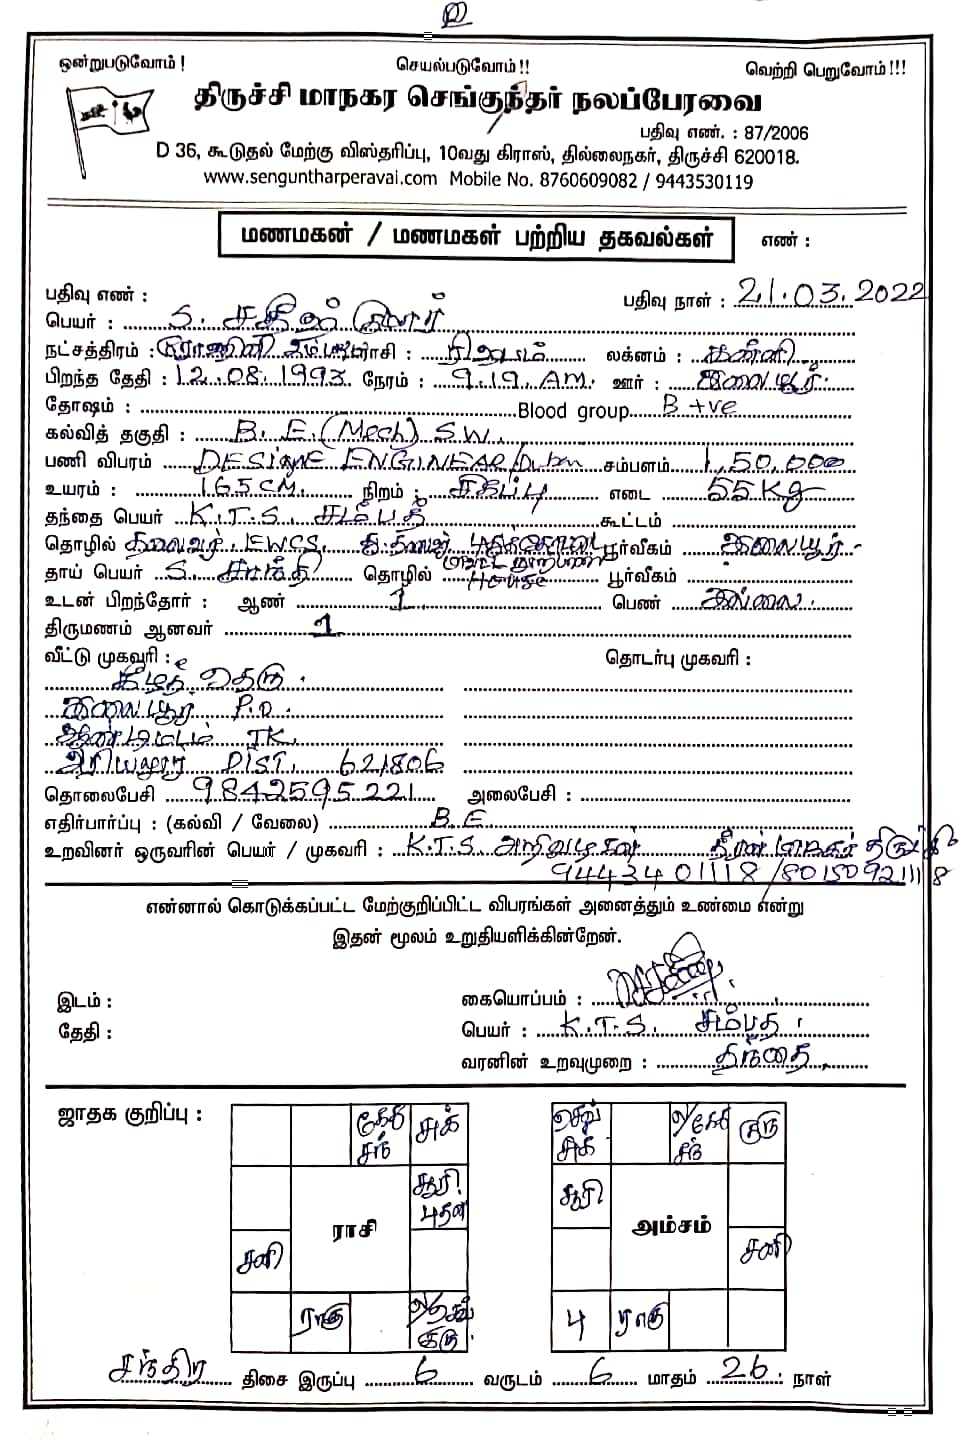 ஒன்றுபடுவோம் ! செயல்படுவோம் !! வெற்றி பெறுவோம் !!!
திருச்சி மாநகர செங்குந்தர் நலப்பேரவை
பதிவு எண். : 87/2006
D 36, கூடுதல் மேற்கு விஸ்தரிப்பு, 10வது கிராஸ், தில்லைநகர், திருச்சி 620018.
www.senguntharperavai.com Mobile No. 8760609082 / 9443530119
மணமகன் / மணமகள் பற்றிய தகவல்கள் எண் :
பதிவு எண் : பதிவு நாள் : 21.03.2022
பெயர் : S. சதீஷ் குமார்
நட்சத்திரம் : ரோஹிணி ராசி : ரிஷபம் லக்னம் : கன்னி
பிறந்த தேதி : 12.08.1993 நேரம் : 9.19. AM. ஊர் :
தோஷம் : Blood group B +ve
கல்வித் தகுதி : B.E.(Mech) S.W.
பணி விபரம் DESIGNE ENGINEAR/Dubai சம்பளம் 1,50,000
உயரம் : 165 CM. நிறம் : சிகப்பு எடை 55 Kg
தந்தை பெயர் K.T.S. சம்பத் கூட்டம்
தொழில் தலைவர். EWCS. பூர்வீகம்
தாய் பெயர் S. சாந்தி தொழில் House பூர்வீகம்
உடன் பிறந்தோர் : ஆண் 1. பெண் இல்லை.
திருமணம் ஆனவர் 1
வீட்டு முகவரி : தொடர்பு முகவரி :
கீழத் தெரு.
P.O.
ஆண்டிமடம் TK.
அரியலூர் DIST. 621806
தொலைபேசி 9842595221 அலைபேசி :
எதிர்பார்ப்பு : (கல்வி / வேலை) B.E
உறவினர் ஒருவரின் பெயர் / முகவரி : K.T.S. அறிவழகன் திருச்சி
9443401118 /8015092118
என்னால் கொடுக்கப்பட்ட மேற்குறிப்பிட்ட விபரங்கள் அனைத்தும் உண்மை என்று
இதன் மூலம் உறுதியளிக்கின்றேன்.
இடம் : கையொப்பம் :
தேதி : பெயர் : K.T.S. சம்பத்
வரனின் உறவுமுறை : தந்தை
ஜாதக குறிப்பு :
கேது சந் சுக் செவ் சுக் ல/கேது சந் குரு
சூரி புதன் சூரி
ராசி அம்சம்
சனி சனி
ராகு ல/செவ் குரு பு ராகு
சந்திர திசை இருப்பு 6 வருடம் 6 மாதம் 26 நாள்